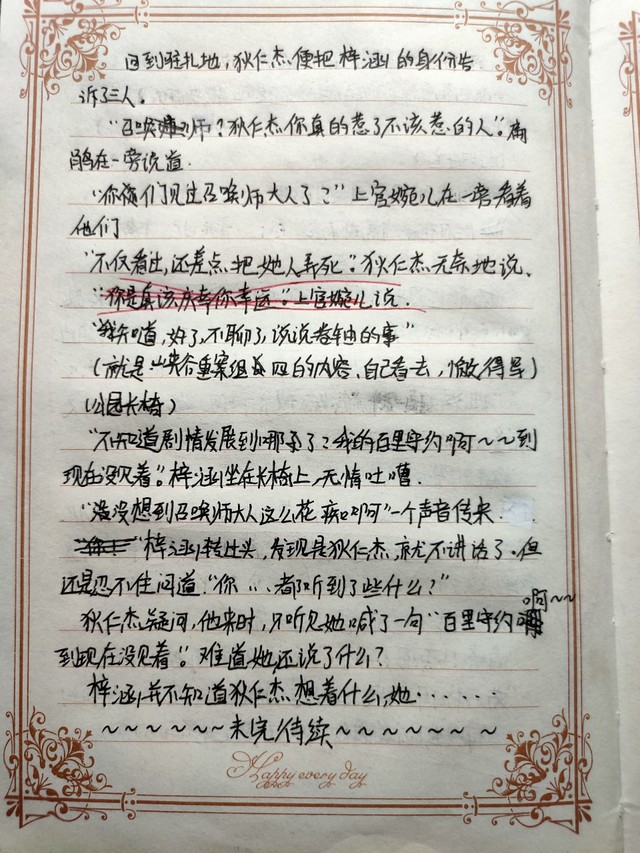 回到驻扎地，狄仁杰便把梓涵的身份告
诉了三人。
"召唤师？狄仁杰你真的惹了不该惹的人"。扁
鹊在一旁说道.
"你们见过召唤师大人了？"上官婉儿在一旁看着
他们
"不仅看出，还差点把她人弄死"。狄仁杰无奈地说.
"你是真该庆幸你幸运"。上官婉儿说.
"我知道，好了，不聊了，说说卷轴的事"
(就是峡谷重案组 四的内容、自己看去，懒得写)
(公园长椅)
"不知道剧情发展到哪了？我的百里守约啊～～到
现在没见着"。梓涵坐在长椅上，无情吐嘈.
"没想到召唤师大人这么花痴啊"一个声音传来.
梓涵转过头，发现是狄仁杰，就不讲话了。但
还是忍不住问道."你...都听到了些什么？"
狄仁杰疑问，他来时，只听见她喊了一句"百里守约啊～～
到现在没见着"。难道她还说了什么？
梓涵并不知道狄仁杰想着什么，她······
～～～～～～未完待续～～～～～～～
Happy every day